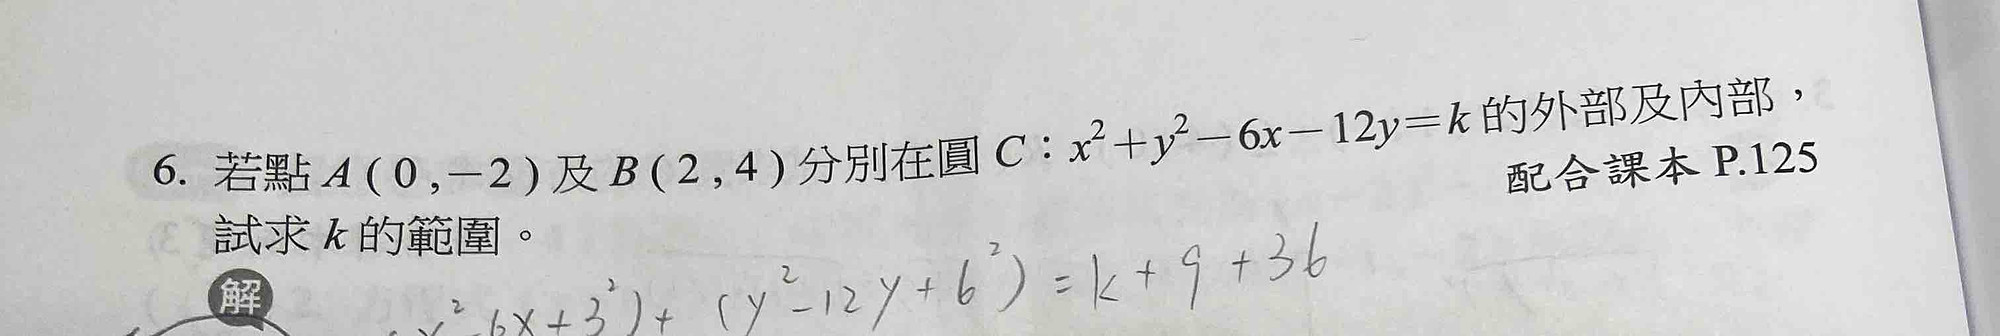 6. 若點 A ( 0 , −2 ) 及 B ( 2 , 4 ) 分別在圓 C：x²+y²−6x−12y=k 的外部及內部，
配合課本 P.125
試求 k 的範圍。
解
x²-6x+3²)+ (y²-12y+6²) = k+9+36